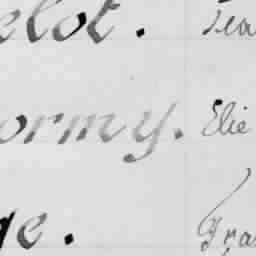 elot. Jea
ormy. Elie
ge. Fra